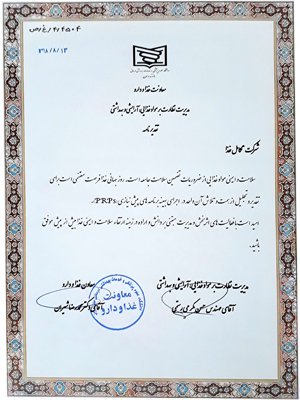 معاونت غذا و دارو
مدیریت نظارت بر مواد غذایی، آرایشی و بهداشتی
تقدیرنامه
شرکت گلال غذا
سلامت و ایمنی مواد غذایی از ضروریات تضمین سلامت جامعه است. روز جهانی غذا فرصت مغتنمی است برای
تقدیر و تجلیل از همت و تلاش آن واحد در اجرای بهینه برنامه های پیش نیازی (PRPs).
امید است با فعالیت های اثربخش و مدیریت مبتنی بر دانش و اراده در زمینه ارتقاء سلامت و ایمنی غذا بیش از پیش موفق
باشید.
مدیریت نظارت بر مواد غذایی، آرایشی و بهداشتی
آقای مهندس
معاون غذا و دارو
آقای دکتر محمدرضا شیران
معاونت
غذا و دارو